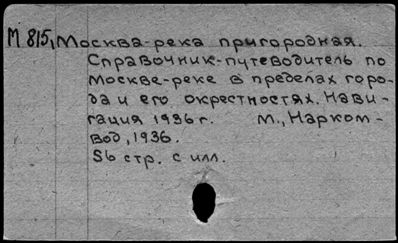 М 815, Москва-река пригородная.
Справочник-путеводитель по
Москве-реке в пределах горо-
да и его окрестностях. Нави-
гация 1936 г. М., Нарком-
вод, 1936.
56 стр. с илл.